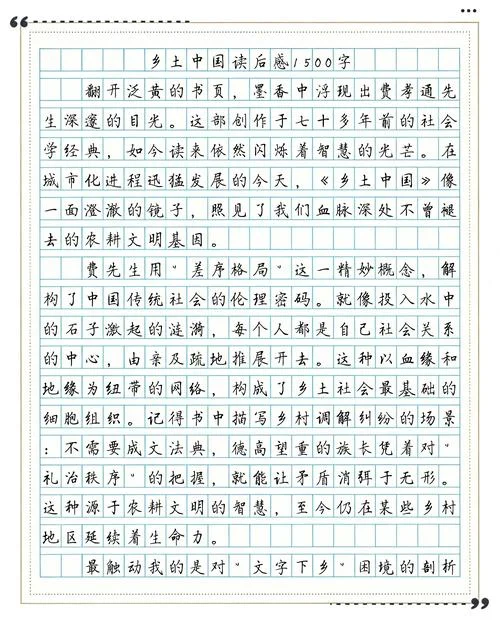 乡土中国读后感1500字
翻开泛黄的书页，墨香中浮现出費孝通先
生深邃的目光。这部创作于七十多年前的社会
学经典，如今读来依然闪烁着智慧的光芒。在
城市化进程迅猛发展的今天，《乡土中国》像
一面澄澈的镜子，照见了我们血脉深处不曾褪
去的农耕文明基因。
費先生用“差序格局”这一精妙概念，解
构了中国传统社会的伦理密码。就像投入水中
的石子激起的涟漪，每个人都是自己社会关系
的中心，由亲及疏地推展开去。这种以血缘和
地缘为纽带的网络，构成了乡土社会最基础的
细胞组织。记得书中描写乡村调解纠纷的场景
：不需要成文法典，德高望重的族长凭着对“
礼治秩序”的把握，就能让矛盾消弭于无形。
这种源于农耕文明的智慧，至今仍在某些乡村
地区延续着生命力。
最触动我的是对“文字下乡”困境的剖析